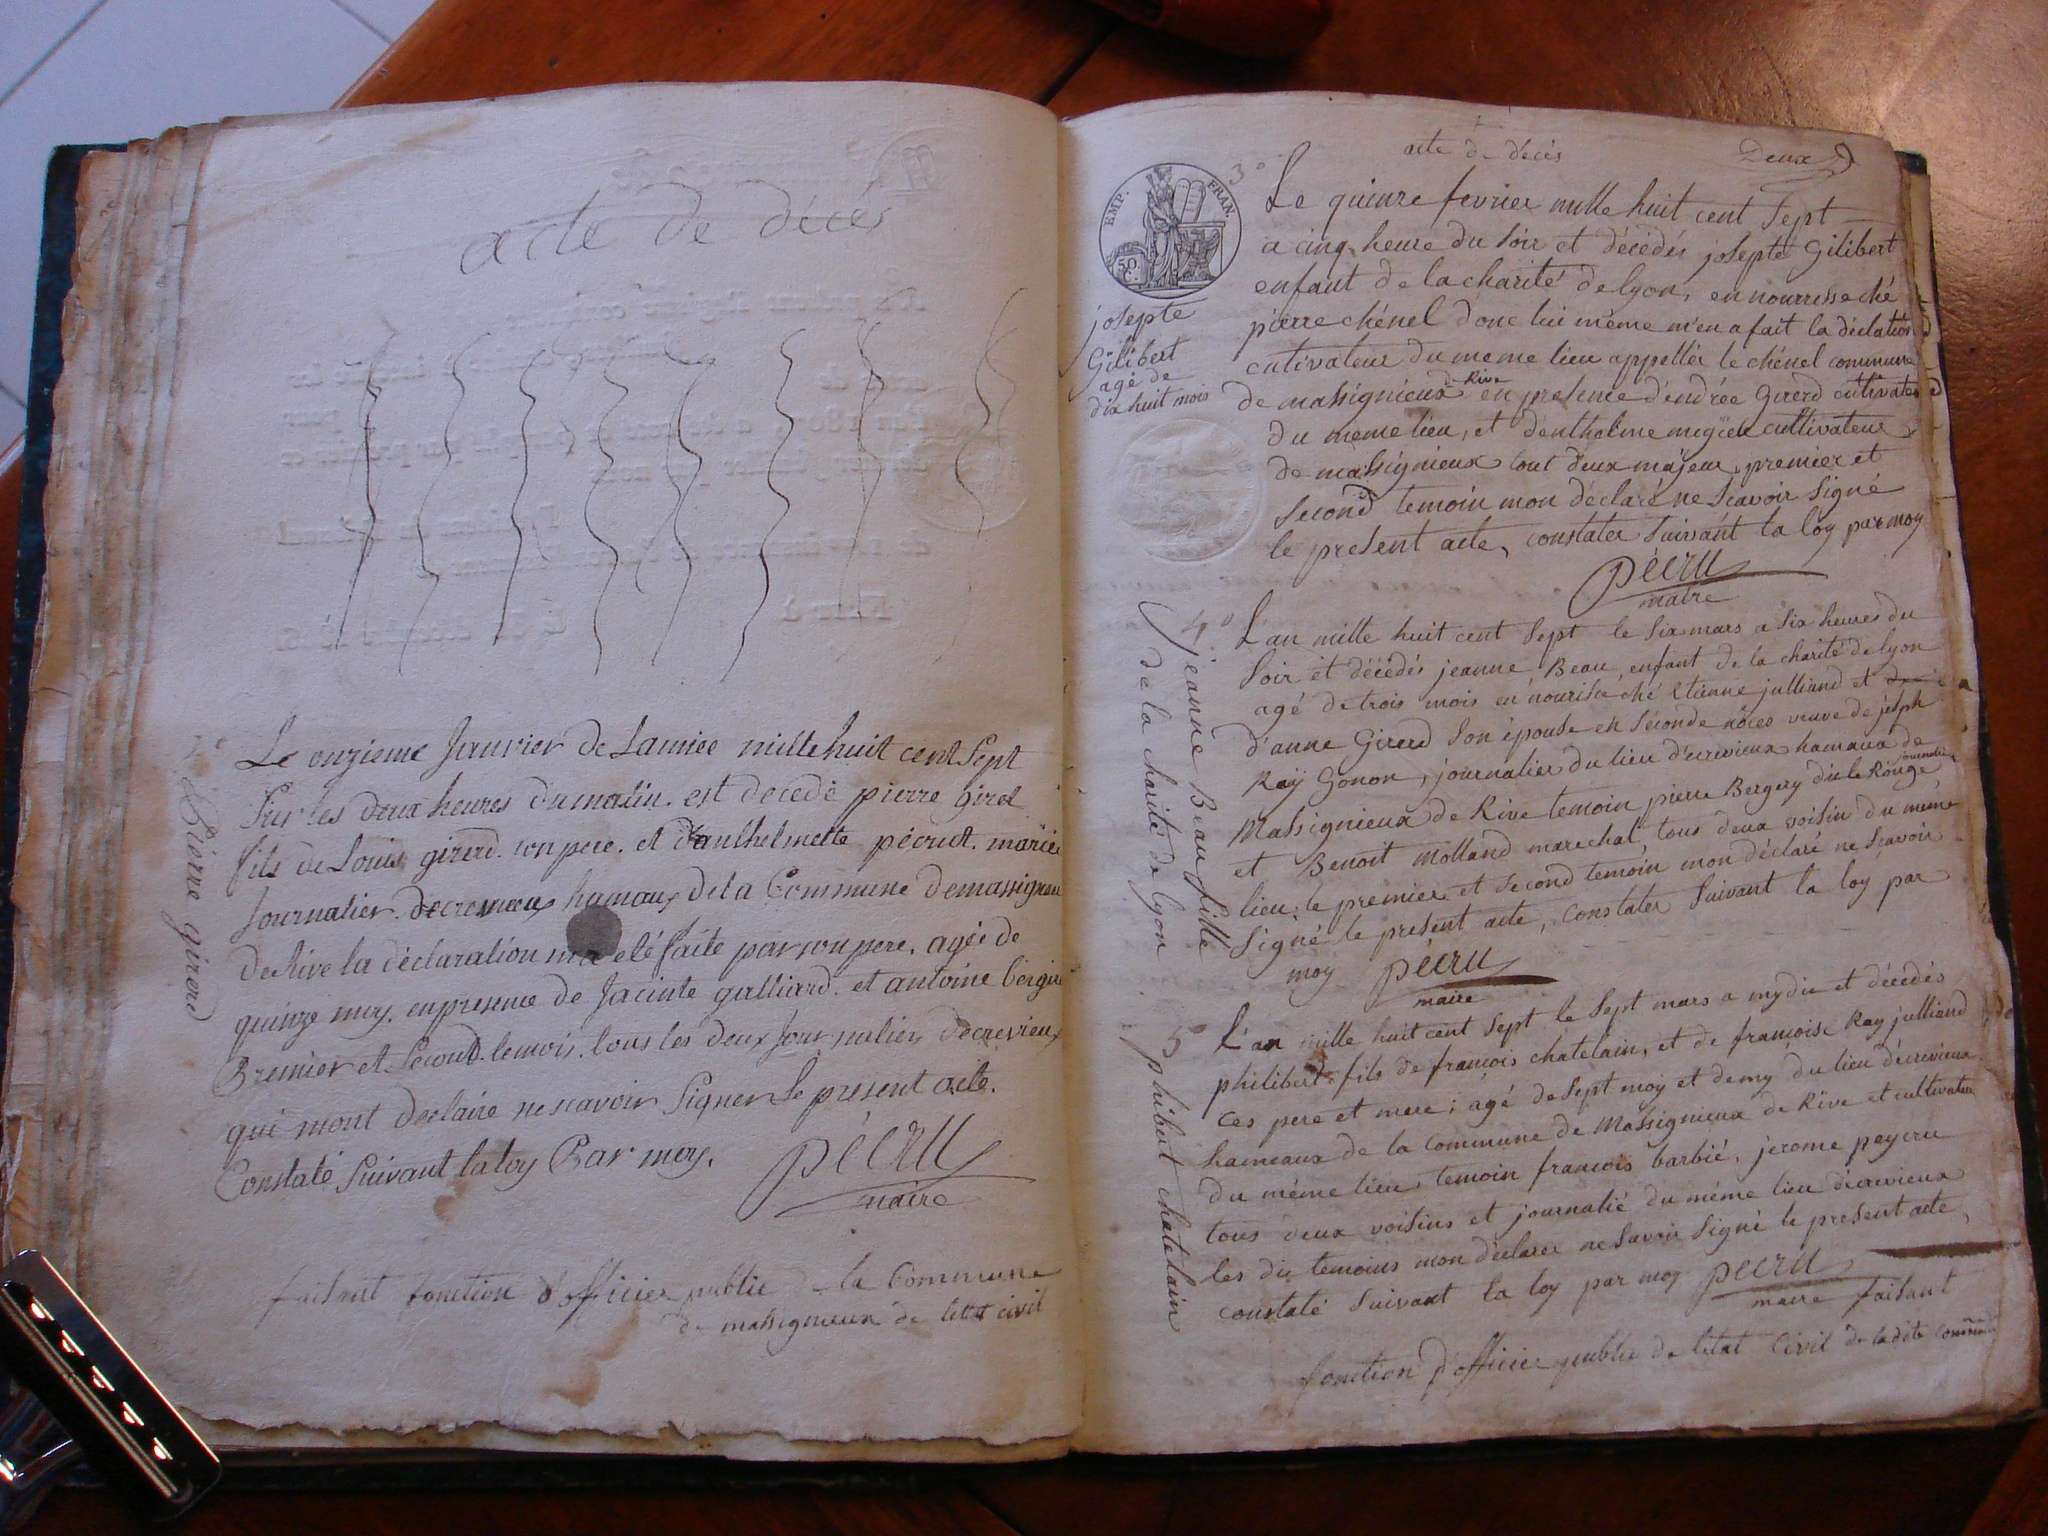 acte de décès
Pierre girerd
Le onzieme Janvier de Lannee mille huit cent Sept
Sur les deux heures du matin. est decedé pierre girel
fils de Louis girerd. son pere. et danthelmette pécrut. mariée
Journalier. decrevieux hamaux de la Commune demassigneu
de Rive la déclaration ma elé faite par son pere, agée de
quinze moy. en presence de Jacinte galliard. et antoine bergir
Premier et Second. temois. tous les deux Journalier decrevieux
qui mont declaire ne scavoir Signer Le present acte.
Constaté Suivant la loy Par moy.
pécru
maire
faisant fonction d'officier public de la Commune
de massignieux de letat civil
acte de décès
Deux
EMP. FRAN.
50 C.
3°
josepte
Gilibert
agé de
dix huit mois
Le quinze fevrier mille huit cent Sept
a cinq heure du soir et décédés josepte Gilibert
enfant de la charité de lyon, en nourrisse ché
pierre chénel donc lui même m'en a fait la déclation
cutivateur du meme lieu appellér le chénel commune
de massignieux de Rive en presence d'endrée Girerd cultivateu
du meme lieu, et dentholme cultivateur
de massignieux tout deux majeur, premier et
second temoin mon déclaré ne Scavoir Signé
le present acte, constater Suivant la loy par moy
pécru
maire
4°
jeanne Beau fille
de la charité de lyon
L'an mille huit cent Sept le Six mars a Six heures du
Soir et décédés jeanne Beau, enfant de la charité de lyon
agé de trois mois en nourisse ché Etienne julliand et
d'anne Girerd Son épouse en Séconde nôces veuve de jôsph
Ray Gonon, journalier du lieu d'ecrivieux hamaux de
Massignieux de Rive temoin pierre Bergery dit le Rouge journalié
et Benoit Molland marechal, tous deux voisin du méme
lieu, le premier et second temoin mon déclaré ne Scavoir
Signé le present acte, constater Suivant la loy par
moy pécru
maire
5°
philibert chatelain
L'an mille huit cent Sept le Sept mars a mydie et décédés
philibert fils de francois chatelain, et de francoise Ray julliand
ces pere et mere; agé de Sept moy et demy du lieu d'écrivieux
hameaux de la commune de Massignieux de Rive et cultivateur
du même lieu, temoin francois barbié, jerome peycru
tous deux voisins et journalié du même lieu décrevieux
les dit temoins mon déclarer ne Savoir Signé le present acte,
constaté Suivant la loy par moy pécru
maire faisant
fonction d'officier publie de letat Civil de ladite Commune